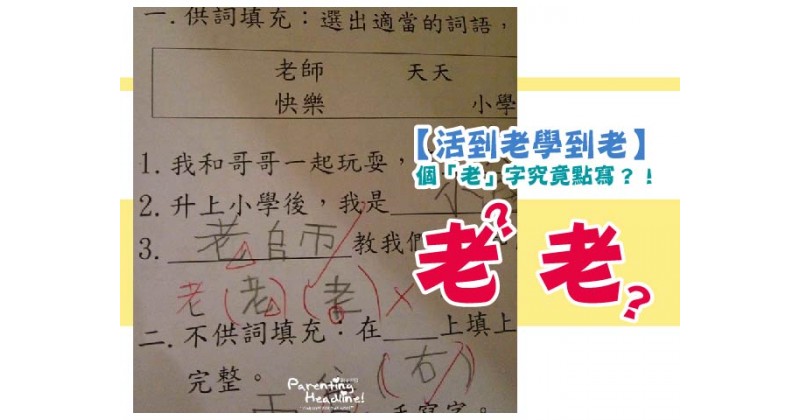 一. 供詞填充：選出適當的詞語，
老師 天天
快樂 小學
1. 我和哥哥一起玩耍，
2. 升上小學後，我是____小
3. 老師 教我們
老(老)(老)×
二. 不供詞填充：在____上填上
完整。
(右)
【活到老學到老】
個「老」字究竟點寫？！
老？老？
Parenting
Headline!